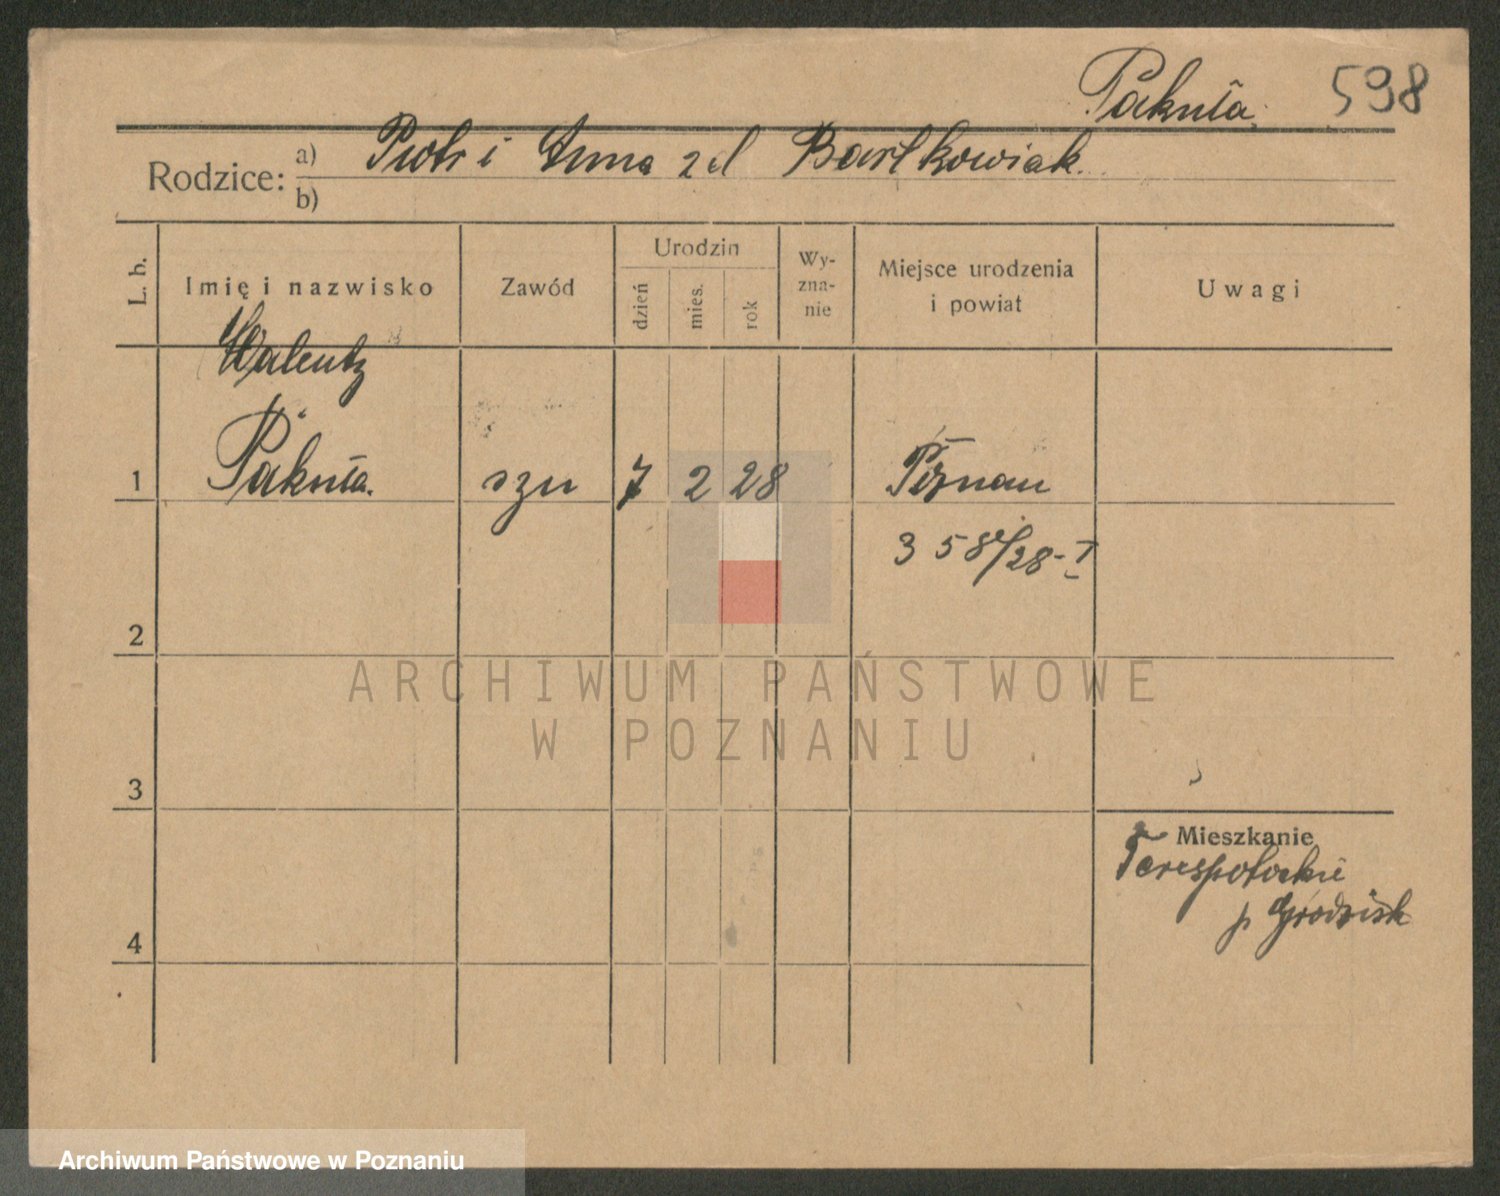 Pakuła. 598
Rodzice: a) Piotr i Anna zd Bartkowiak.
b)
L. b. Imię i nazwisko Zawód Urodzin dzień mies. rok Wy-zna-nie Miejsce urodzenia i powiat Uwagi
Walenty
1 Pakuła. 7 2 28 Poznań
2
3
4
Mieszkanie
p Grodzisk
ARCHIWUM PAŃSTWOWE
W POZNANIU
Archiwum Państwowe w Poznaniu